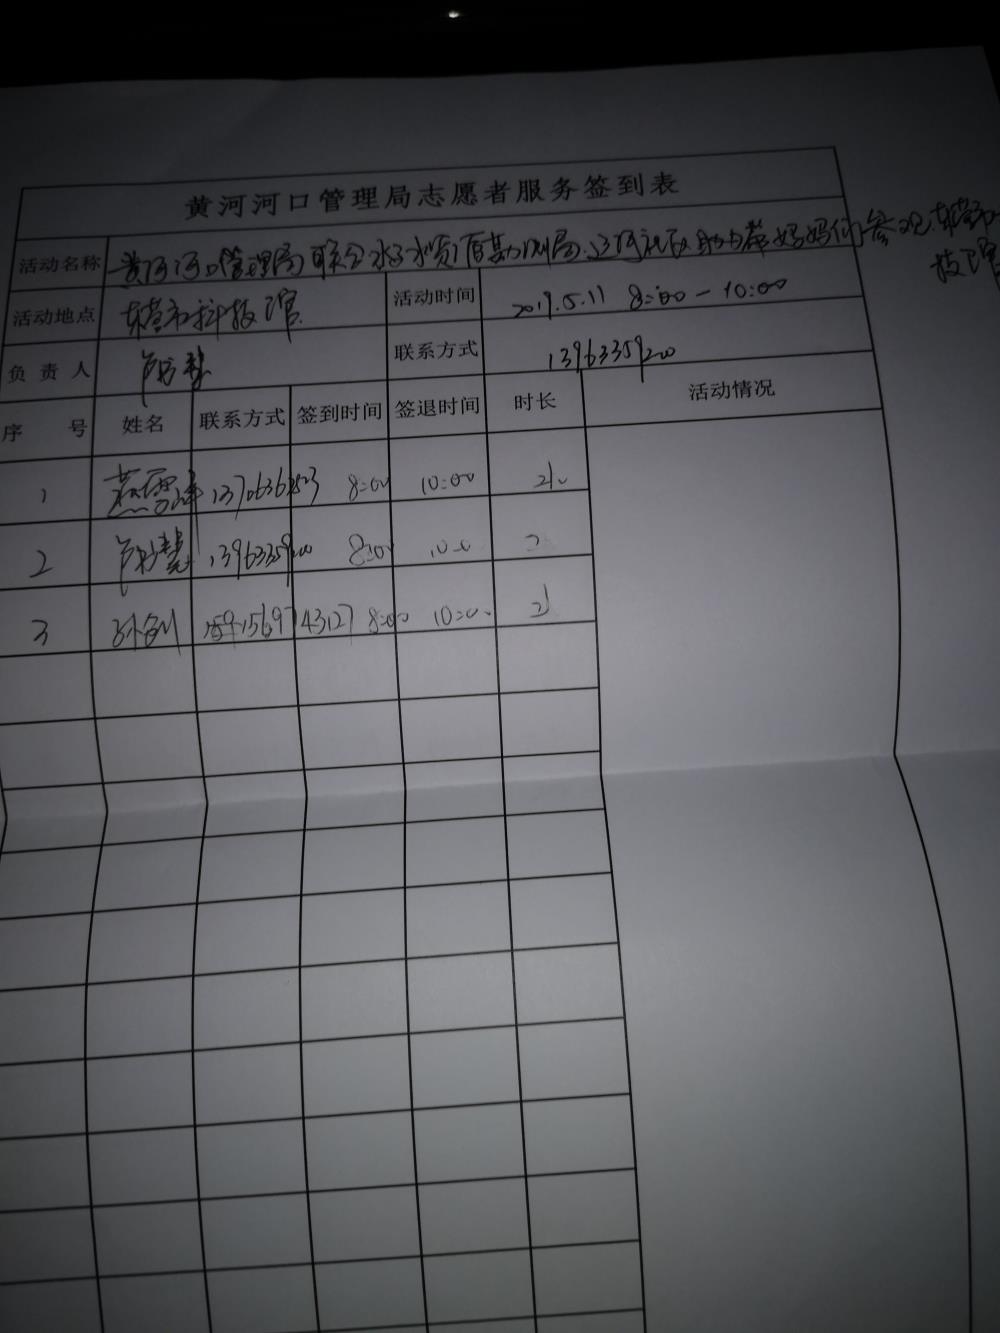 黄河河口管理局志愿者服务签到表
活动名称 黄河河口管理局联合水文水资源勘测局、辽河社区助力带妈妈们参观东营市科技馆
活动地点 东营市科技馆 活动时间 2019.5.11 8:00-10:00
负责人 联系方式 13963359200
序号 姓名 联系方式 签到时间 签退时间 时长 活动情况
1 8:00 10:00
2 13963359200 8:00 10:00 2
3 孙剑 8:00 10:00